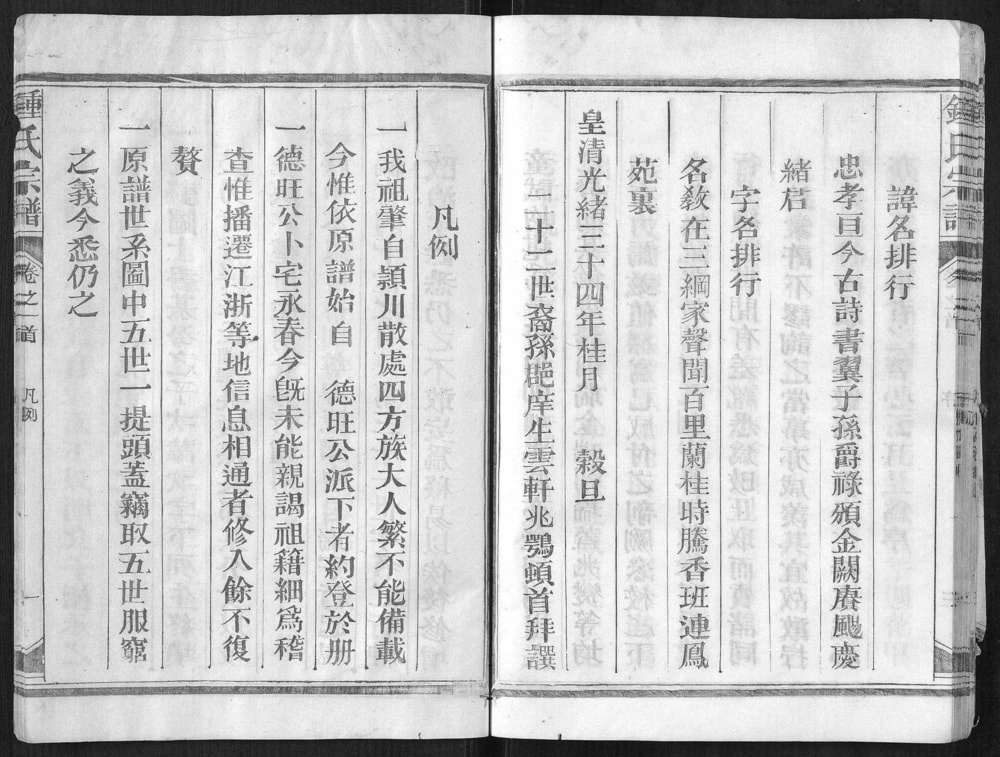 諱名排行
忠孝曰今古詩書翼子孫爵祿頒金闕賡颺慶
緒莒
字名排行
名教在三綱家聲聞百里蘭桂時騰香班連鳳
苑裏
皇清光緒三十四年桂月　穀旦
十二世裔孫郒庠生雲軒兆鶚頓首拜譔
凡例
一我祖肇自潁川散處四方族大人繁不能備載
今惟依原譜始自　德旺公派下者約登於册
一德旺公卜宅永春今旣未能親謁祖籍細爲稽
查惟播遷江浙等地信息相通者修入餘不復
贅
一原譜世系圖中五世一提頭蓋竊取五世服窮
之義今悉仍之
鍾氏宗譜
卷之首
凡例
一